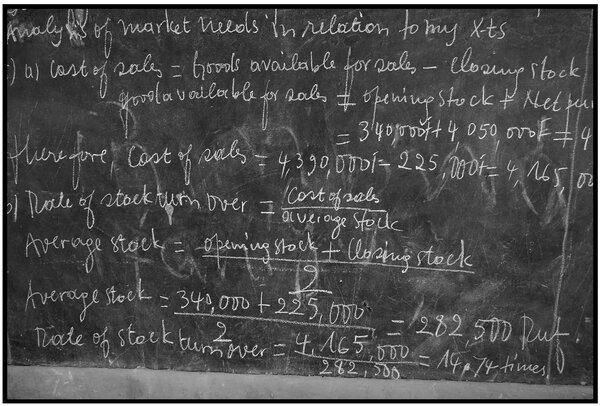 Analysis of market needs in relation to my x-ts
) a) Cost of sales = Goods available for sales - closing stock
good available for sales = opening stock + Net pur
= 340,000f + 4,050,000F = 4
Therefore, Cost of sales = 4,390,000f - 225,000f = 4,165,00
b) Rate of stock turn over = Cost of sales
average stock
Average stock = opening stock + Closing stock
2
Average stock = 340,000 + 225,000 = 282,500 Ruf.
2
Rate of stock turn over = 4,165,000 = 14.74 times
282,500